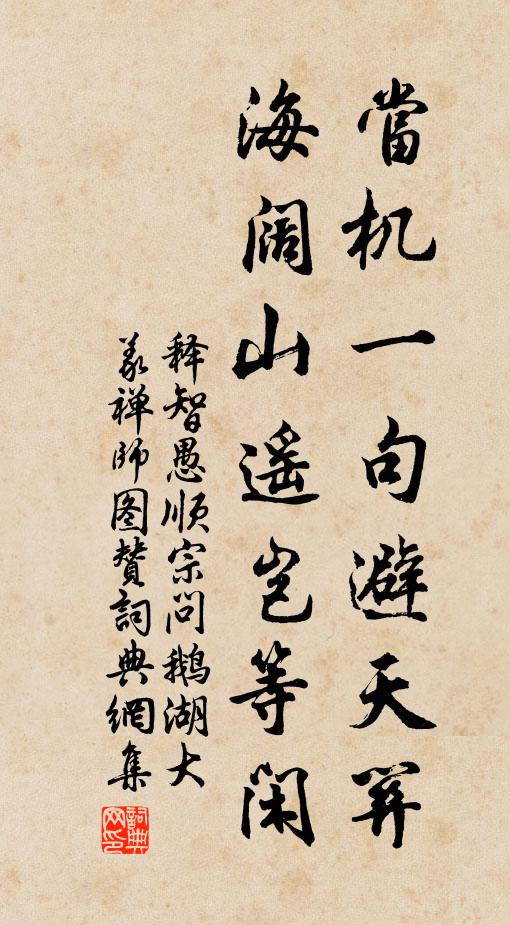 當机一句避天関
海阔山遥岂等闲
释智愚顺宗问鹅湖大
义禅师图赞詞典網集
詞典网印